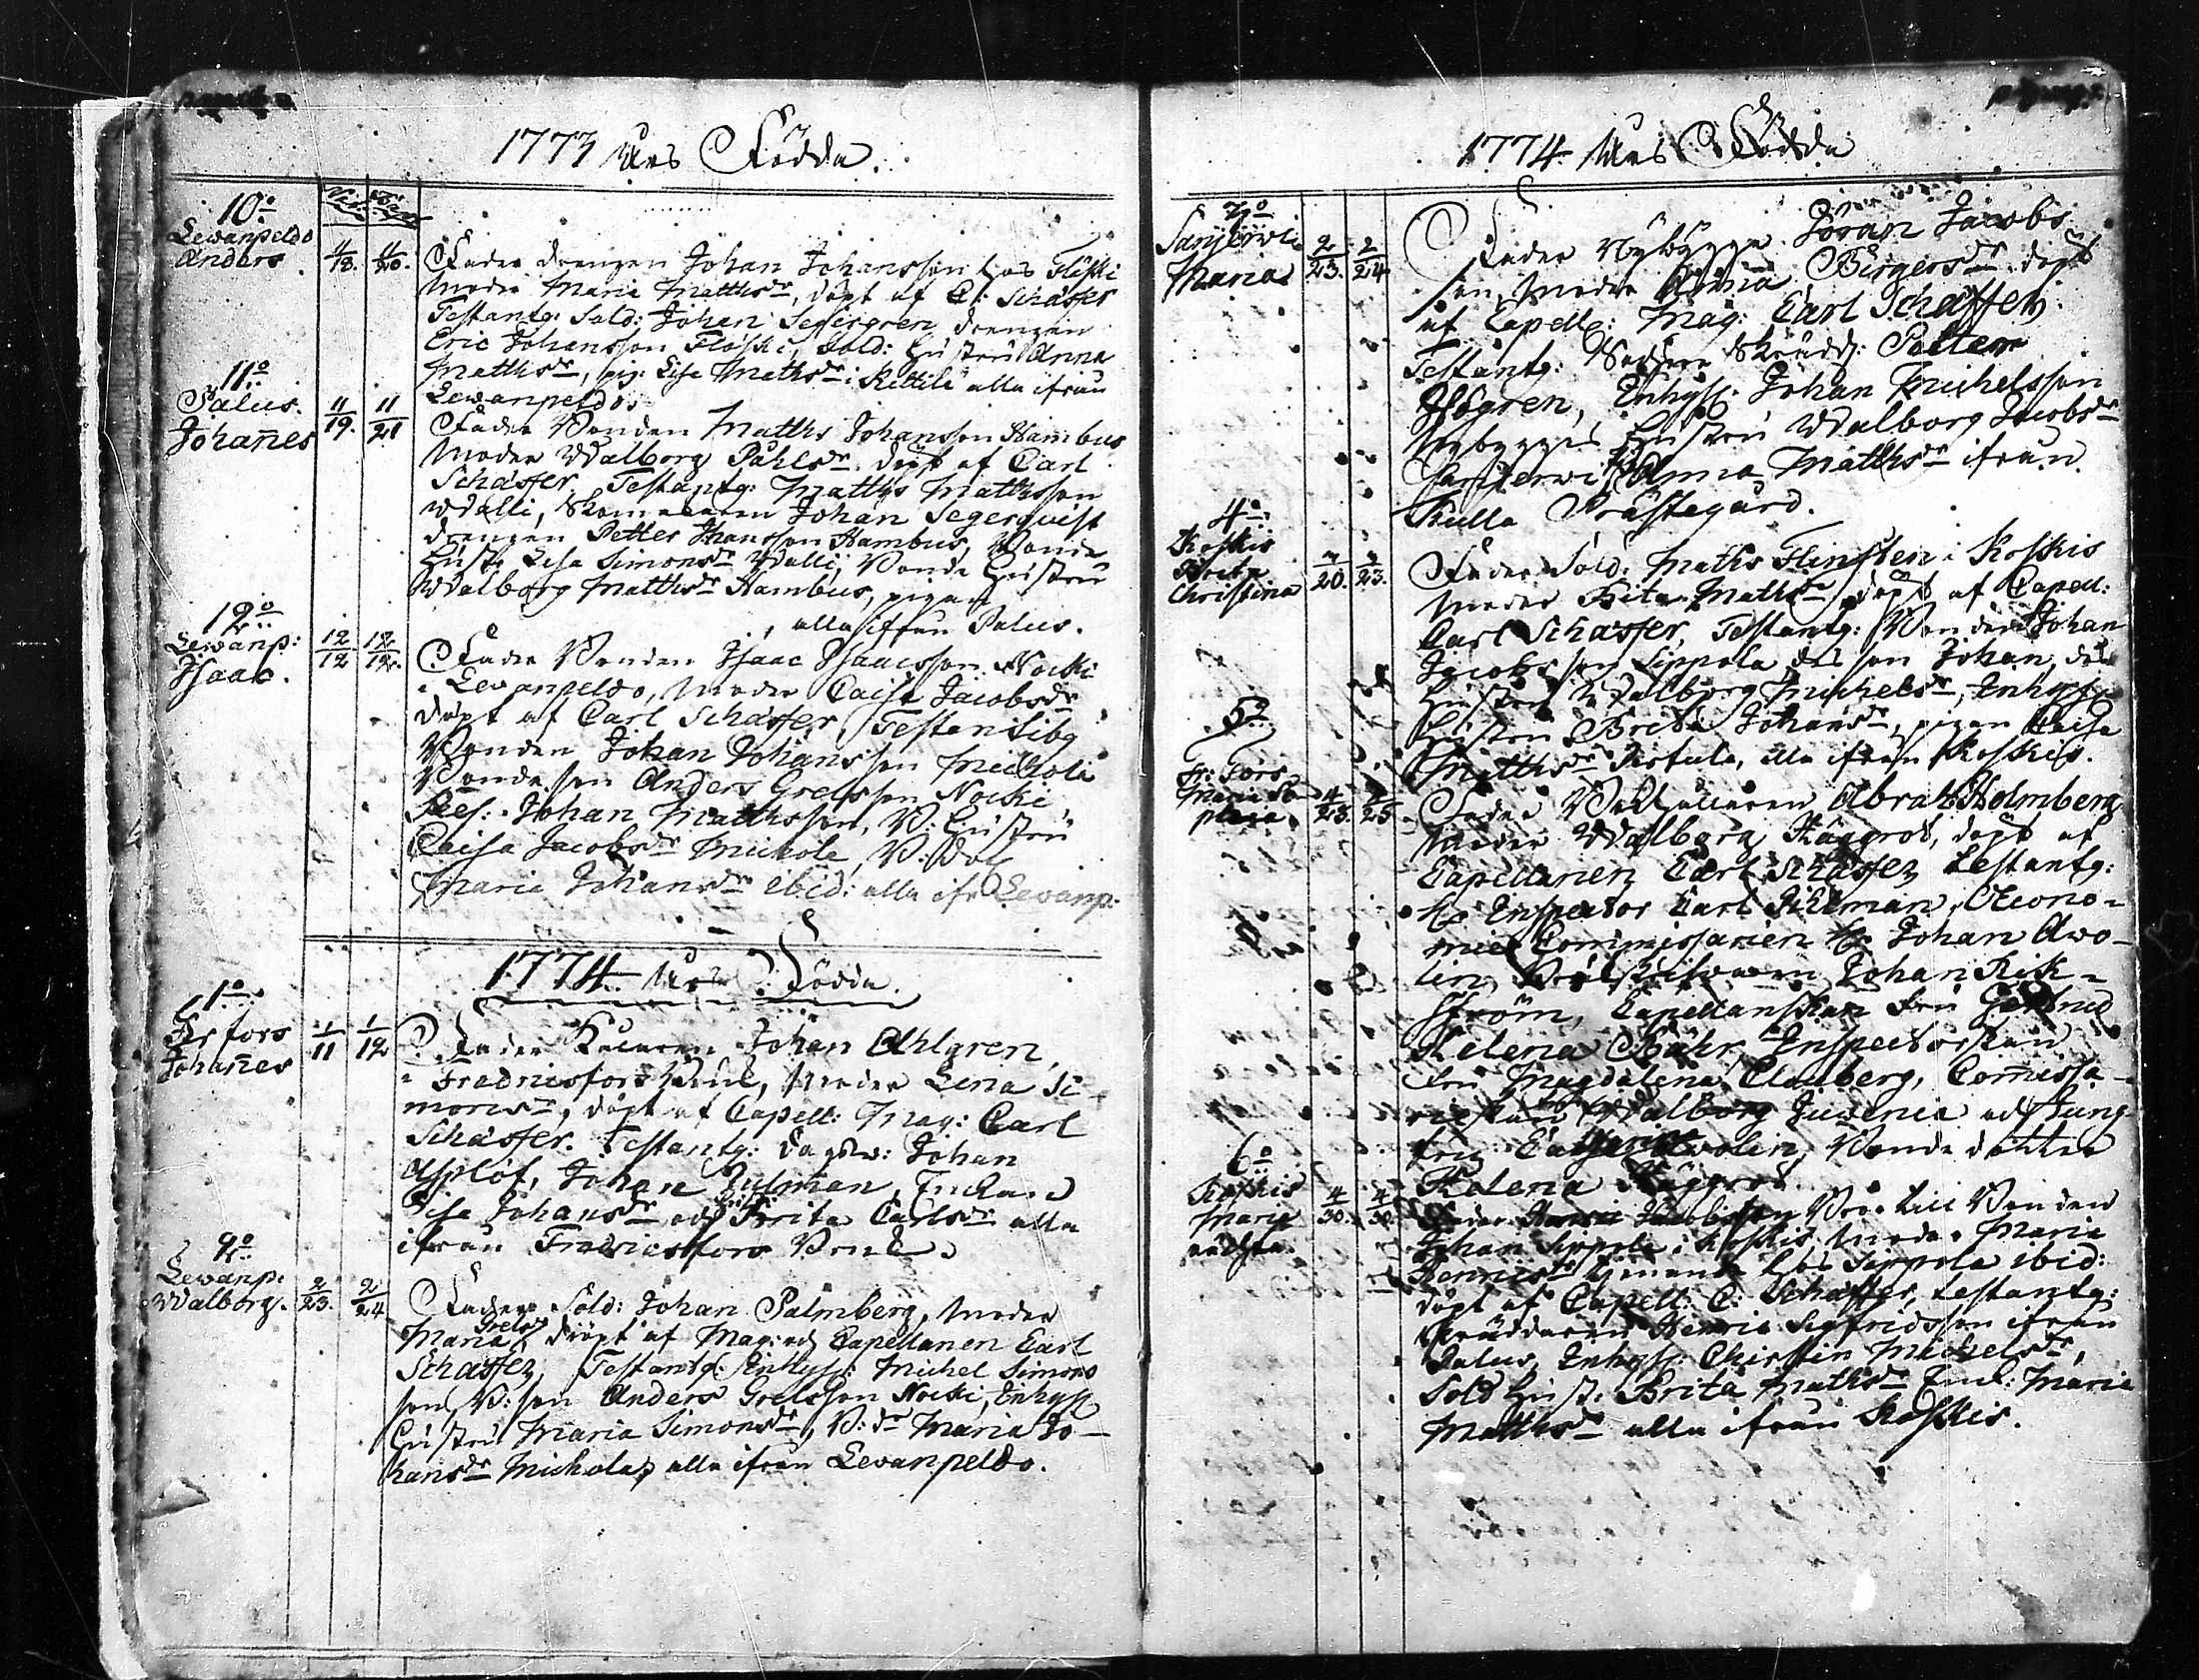 1773 Års Födda.
10o
Lewanpeldo
Anders
11/18. 11/20.
Fader drengen Johan Johansson hos Flöski
Moder Maria Matthsdr, döpt af C: Schæffer
Testantg: Sold: Johan Segergren, drengen
Eric Johansson Flöski, Sold: Hustru Anna
Matthsdr, pig: Lisa Mathsdr: Kettilä alla ifrån
Lewanpeldo.
11o
Palus.
Johañes
11/19. 11/21
Fader Bonden Matths Johansson Hambus
Moder Walborg Påhlsdr. döpt af Carl
Schæffer Testantg: Matths Mathsson
Walli, Skomakaren Johan Segerquist
drengen Petter Hansson Hambus, Bonde
Hust. Lisa Simonsdr Walli, Bonde Hustru
Walborg Matthsdr Hambus, pigan
, alla ifrån Palus.
12o
Lewanp:
Isaac.
12/12 12/12.
Fader Bonden Isaac Isaacsson Nocki
i Lewanpeldo, Moder Caisa Jacobsdr
döpt af Carl Schæffer, Testantibg
Bonden Johan Johansson Mickola
Bondeson Anders Grelsson Nocki,
Johan Matthsson, B: Hustru
Caisa Jacobsdr Mickola, B: dot
Maria Johansdr ibid: alla ifr Lewanp:
1774 Års Födda.
1o
Fr fors
Johañes
1/11 1/12
Fader Johan Ahlgren,
i Fredricsfors Bruk, Moder Lena Si
monsdr, döpt af Capell: Mag: Carl
Schæffer. Testantg: Dagsw: Johan
Asplöf, Johan Julman, Enkan
Lisa Johansdr och Pig: Brita Carlsdr alla
ifrån Fredricsfors Bruk.
2o
Lewanp:
Walborg.
2/23. 2/24
Fader Sold: Johan Palmberg, Moder
Maria Grelsdr döpt af Mag: och Capellanen Carl
Schæffer, Testantg: Inhyss: Michel Simons
son, B: son Anders Grelsson Nocki, Inhyss
Hustru Maria Simonsdr, B: dr Maria Jo-
hansdr Mickola, alla ifrån Lewanpeldo.
1774 Års Födda
3o
Maria
2/23. 2/24
Fader Nybygge Jöran Jacobs
son, Moder Anna Börgersdr. döpt
af Capell: Mag: Carl Schæffer
Testantg: Skrädd: Petter
Isgren, Inhyss: Johan Michelsson
Nybygges Hustru Walborg Jacobsdr
Anna Matthsdr ifrån
Kulla Prästegård.
4o
Koskis
Brita
Christina
3/20. 3/23.
Fader Sold: Maths Flinsten i Koskis
Moder Brita Mathsdr, döpt af Capell:
Carl Schæffer, Testantg: Bonden Johan
Jacobsson Sippola dess son Johan, dess
Hustru Walborg Michelsdr, Inhyss
Hustru Brita Johansdr, pigan Caisa
Matthsdr Sirtula, alla ifrån Koskis.
5o
Fr: Fors
Maria So
phia.
4/23. 4/25
Fader Abrah: Holmberg
Moder Walborg Häggrot, döpt af
Capellanen Carl Schæffer, Testantg:
Hr Inspector Carl Öhman, Oecono-
mie Commissarien Hr Johan Awo-
lin, Bruksskrifwaren Johan Rik-
ström, Capellanskan Fru Gertrud
Helena Bähr, Inspectorskan
Fru Magdalena Clauberg, Comissa-
rieskan Walborg Juvenia och Jung
fru Catharina Avolin, Bonde dotter
Helena Häggrot.
6o
Koskis
Maria
oächta.
4/30. 4/30.
Bro till Bonden
Johan Sippola i Koskis, Moder Maria
Henricsdr tjenande hos Sippola ibid:
döpt af Capell: C: Schæffer, testantg:
Skräddaren Henric Sigfridsson ifrån
Palus, Inhyss: Christin Michelsdr,
Sold Hust. Brita Mathsdr Enk: Maria
Matthsdr alla ifrån Koskis.